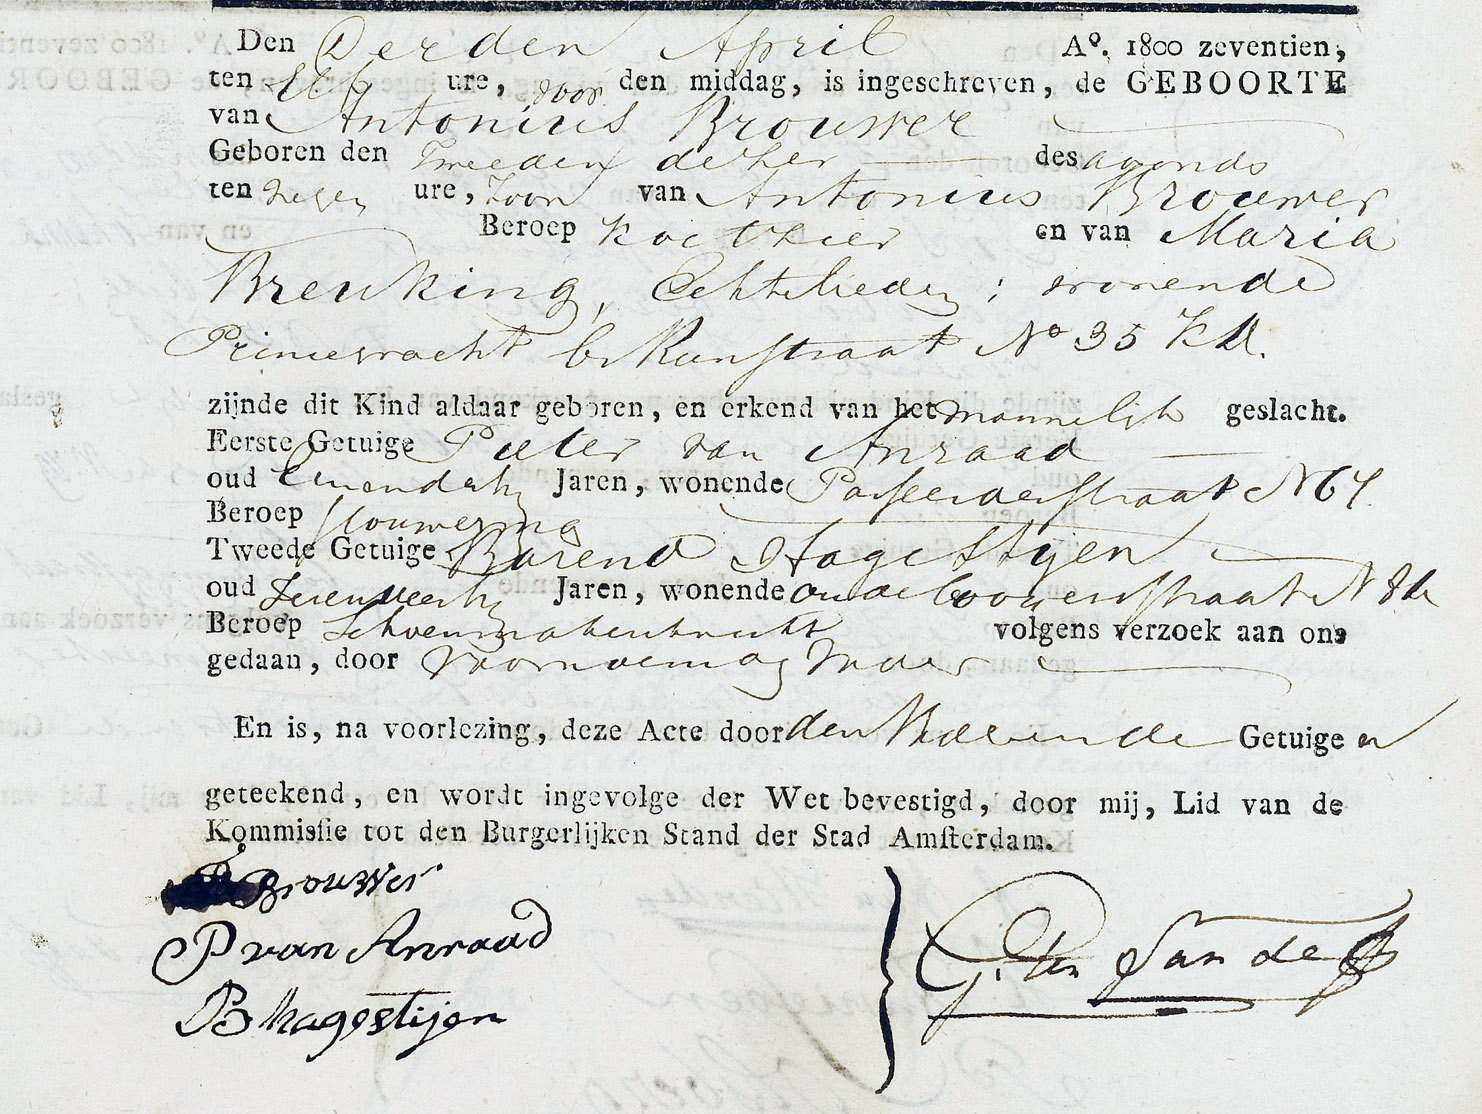 Den Derden April Aº. 1800 zeventien,
ten Elf ure, voor den middag, is ingeschreven, de GEBOORTE
van Antonius Brouwer
Geboren den Tweeden dezer des avonds
ten negen ure, Zoon van Antonius Brouwer
Beroep en van Maria
Breuking, Echtelieden; wonende
Prinsegracht bij Runstraat Nº 35
zijnde dit Kind aldaar geboren, en erkend van het mannelijk geslacht.
Eerste Getuige Pieter van Anraad
oud Eenendertig Jaren, wonende Passeerderstraat N
Beroep
Tweede Getuige Barend Hagestijen
oud Zevenveertig Jaren, wonende straat N
Beroep Schoenmakersknecht volgens verzoek aan ons
gedaan, door voornoemden Vader
En is, na voorlezing, deze Acte door den Vader en de Getuigen
geteekend, en wordt ingevolge der Wet bevestigd, door mij, Lid van de
Kommissie tot den Burgerlijken Stand der Stad Amsterdam.
Brouwer
P van Anraad
B Hagestijen